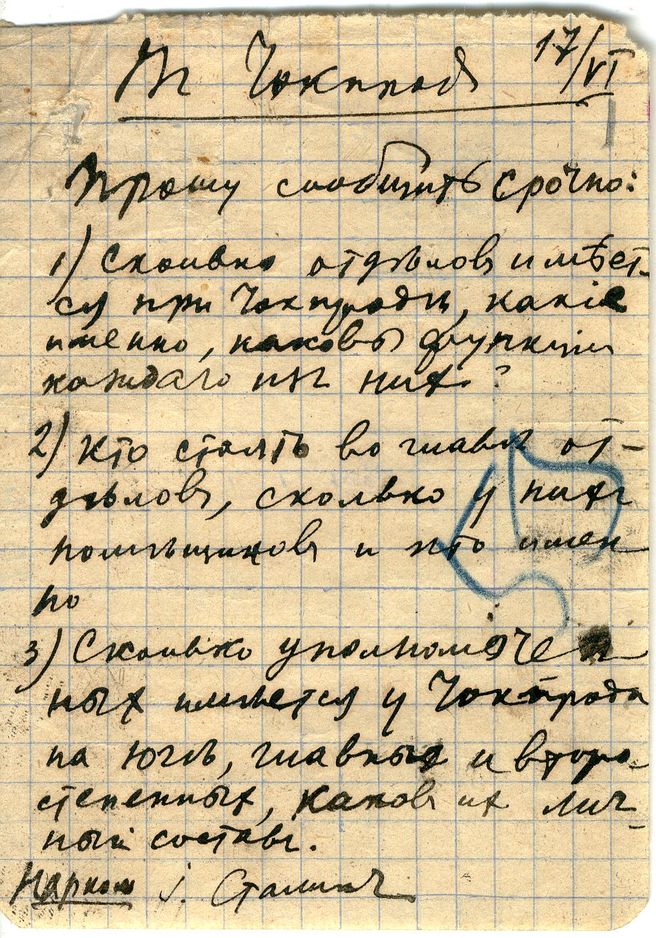 В Чокпрод 17/VI
Прошу сообщить срочно:
1) Сколько отделовъ имѣет-
ся при Чокпроде, какіе
именно, каковы функции
каждаго изъ них?
2) Кто стоять во главѣ от-
дѣловъ, сколько у нихъ
помѣщиковъ и кто имен
но
3) Сколько уполномочен
ных имѣется у Чокпрода
на югѣ, главных и второ-
степенных, каковъ их лич-
ный составъ.
Нарком І. Сталинъ